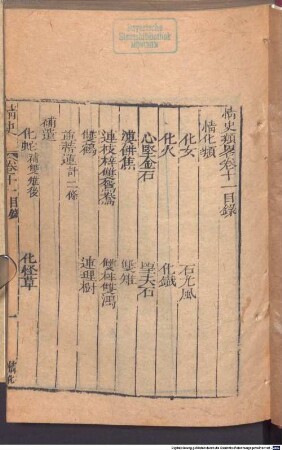 Bayerische
Staatsbibliothek
MÜNCHEN
情史類畧卷十一目錄
情化類
化女
石尤風
化火
化鐵
心堅金石
望夫石
雙雉
連枝梓雙鴛鴦
雙雄雙鴻
雙鶴
連理樹
並蒂蓮計二條
補遺
化蛇補雙雉後
化怪草
情史
卷十一目錄
一
情化